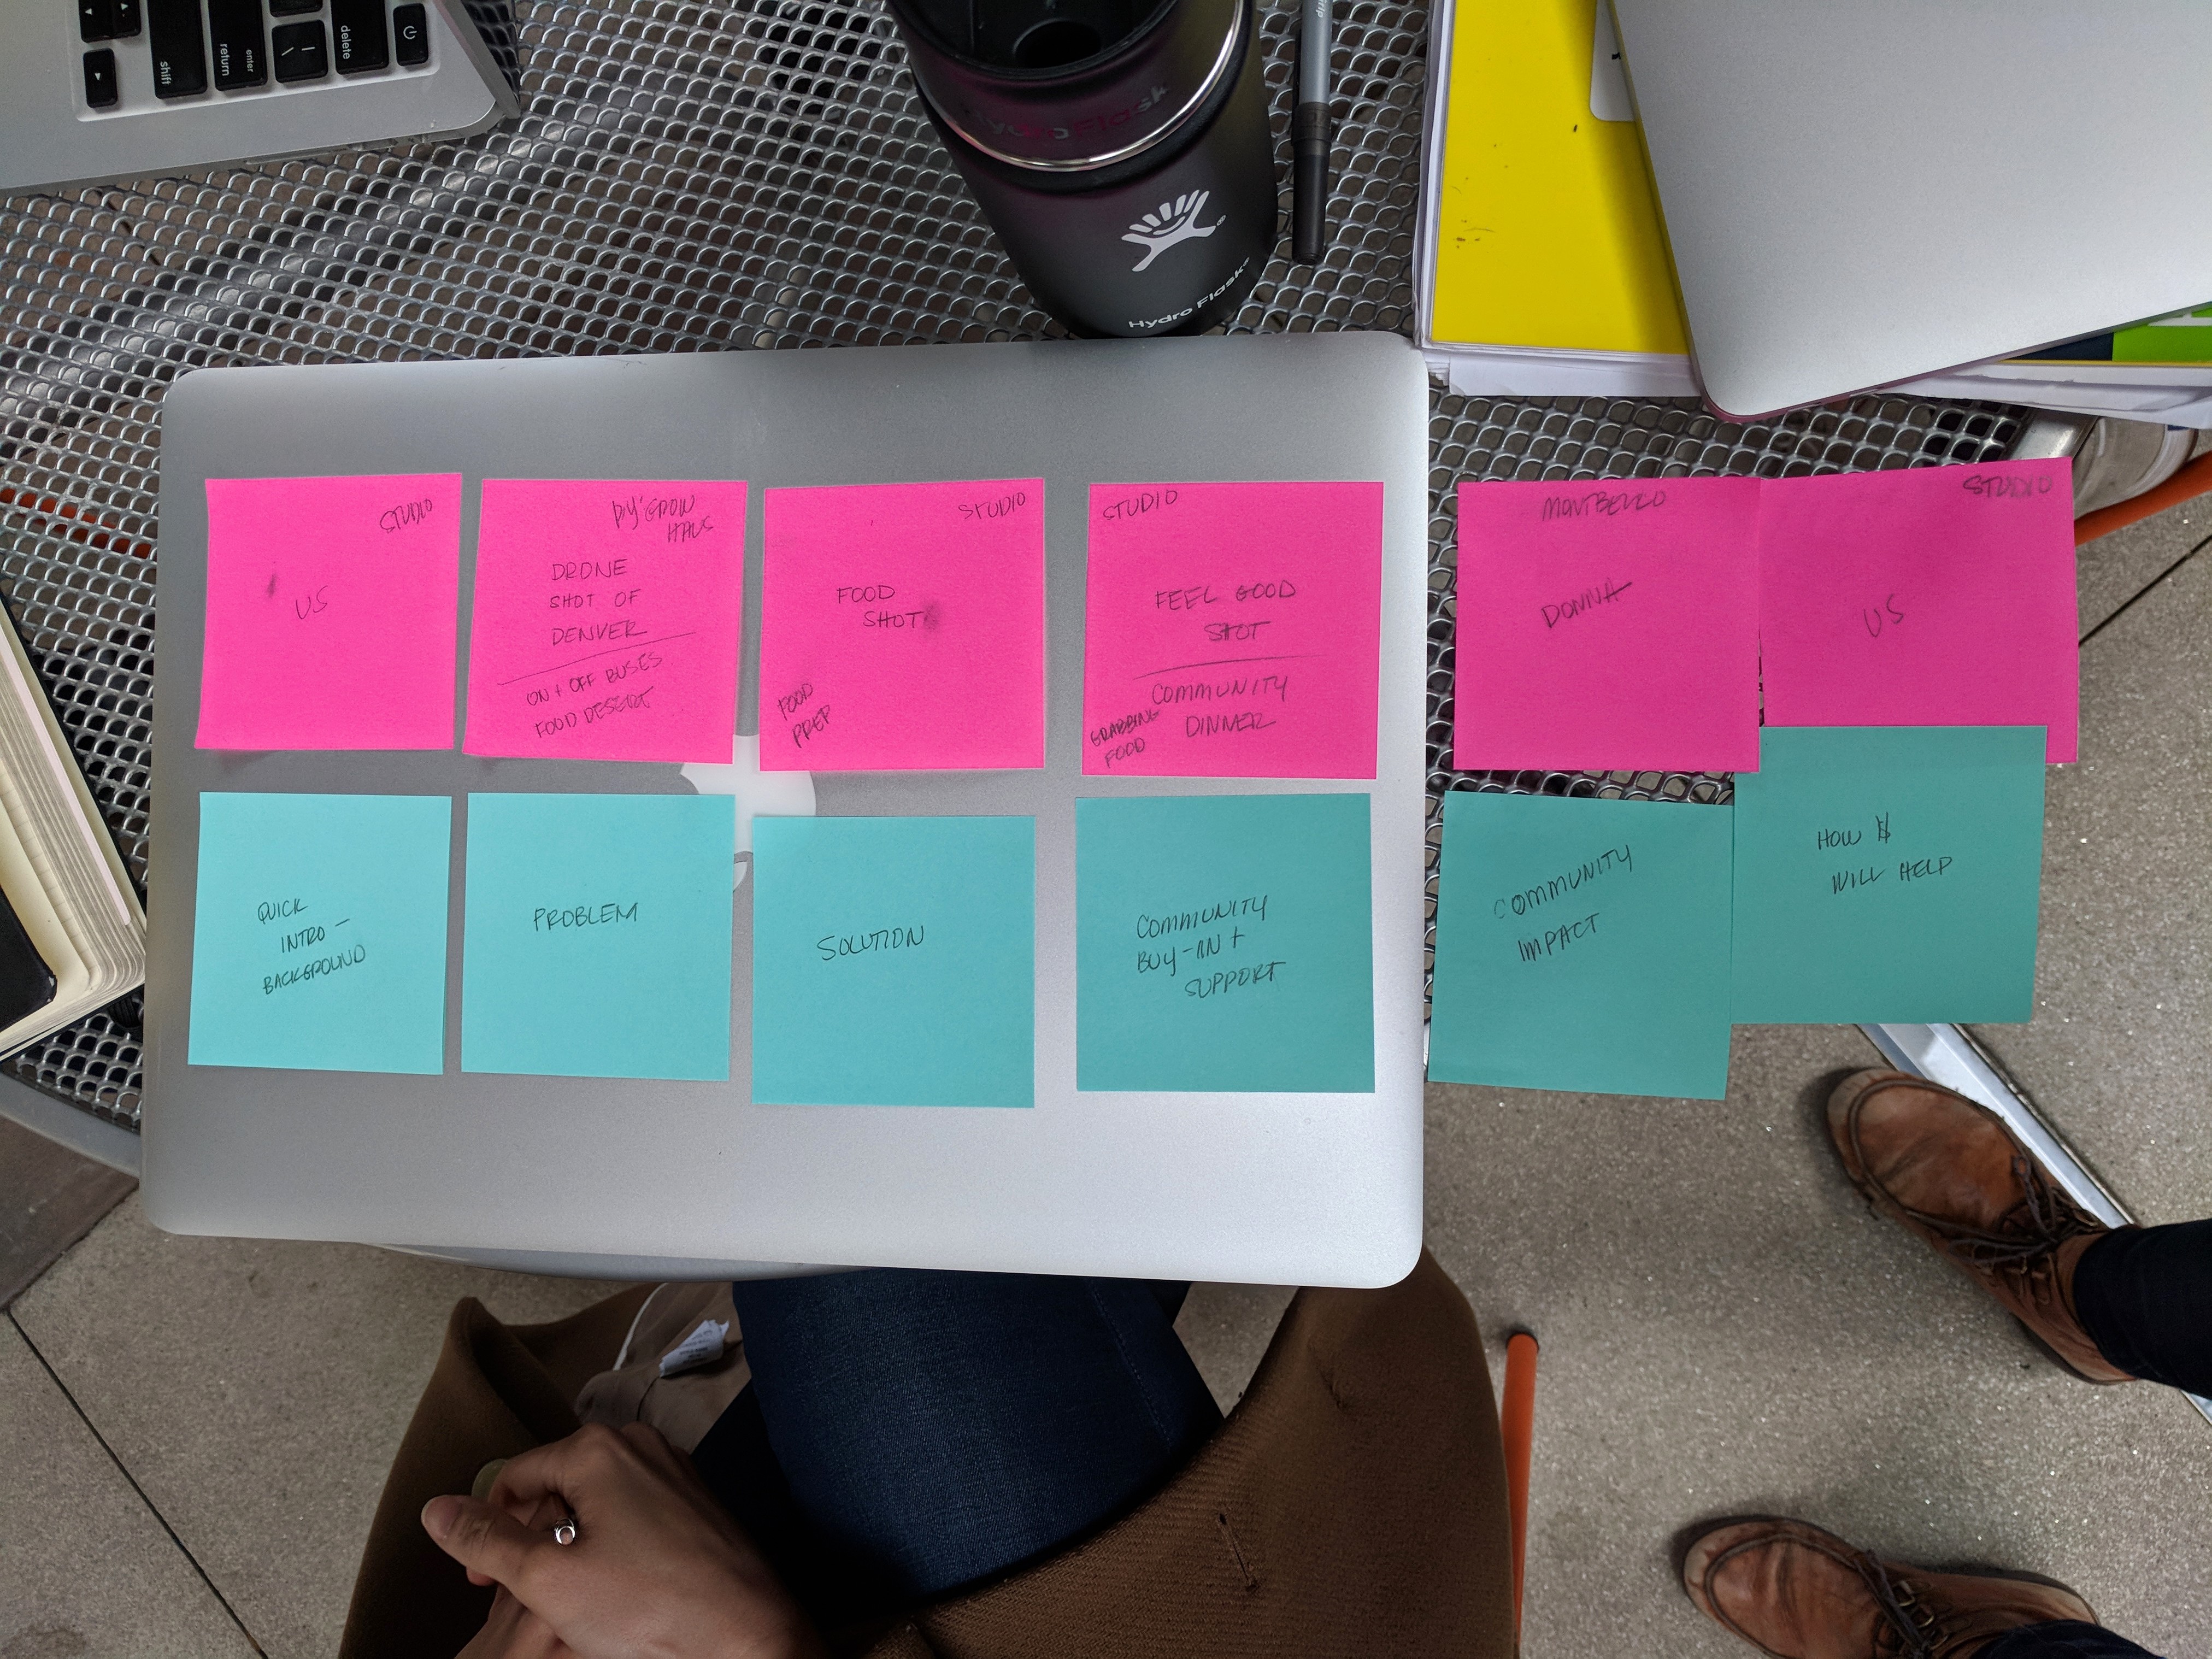 shift
enter
return
delete
Hydro Flask
Hydro Flask
STUDIO
US
by GROW
HAUS
DRONE
SHOT OF
DENVER
ON + OFF BUSES
FOOD DESERT
STUDIO
FOOD
SHOT
FOOD
PREP
STUDIO
FEEL GOOD
SHOT
COMMUNITY
DINNER
GRABBING
FOOD
MONTBELLO
DONNA
STUDIO
US
QUICK
INTRO -
BACKGROUND
PROBLEM
SOLUTION
COMMUNITY
BUY-IN +
SUPPORT
COMMUNITY
IMPACT
HOW $
WILL HELP